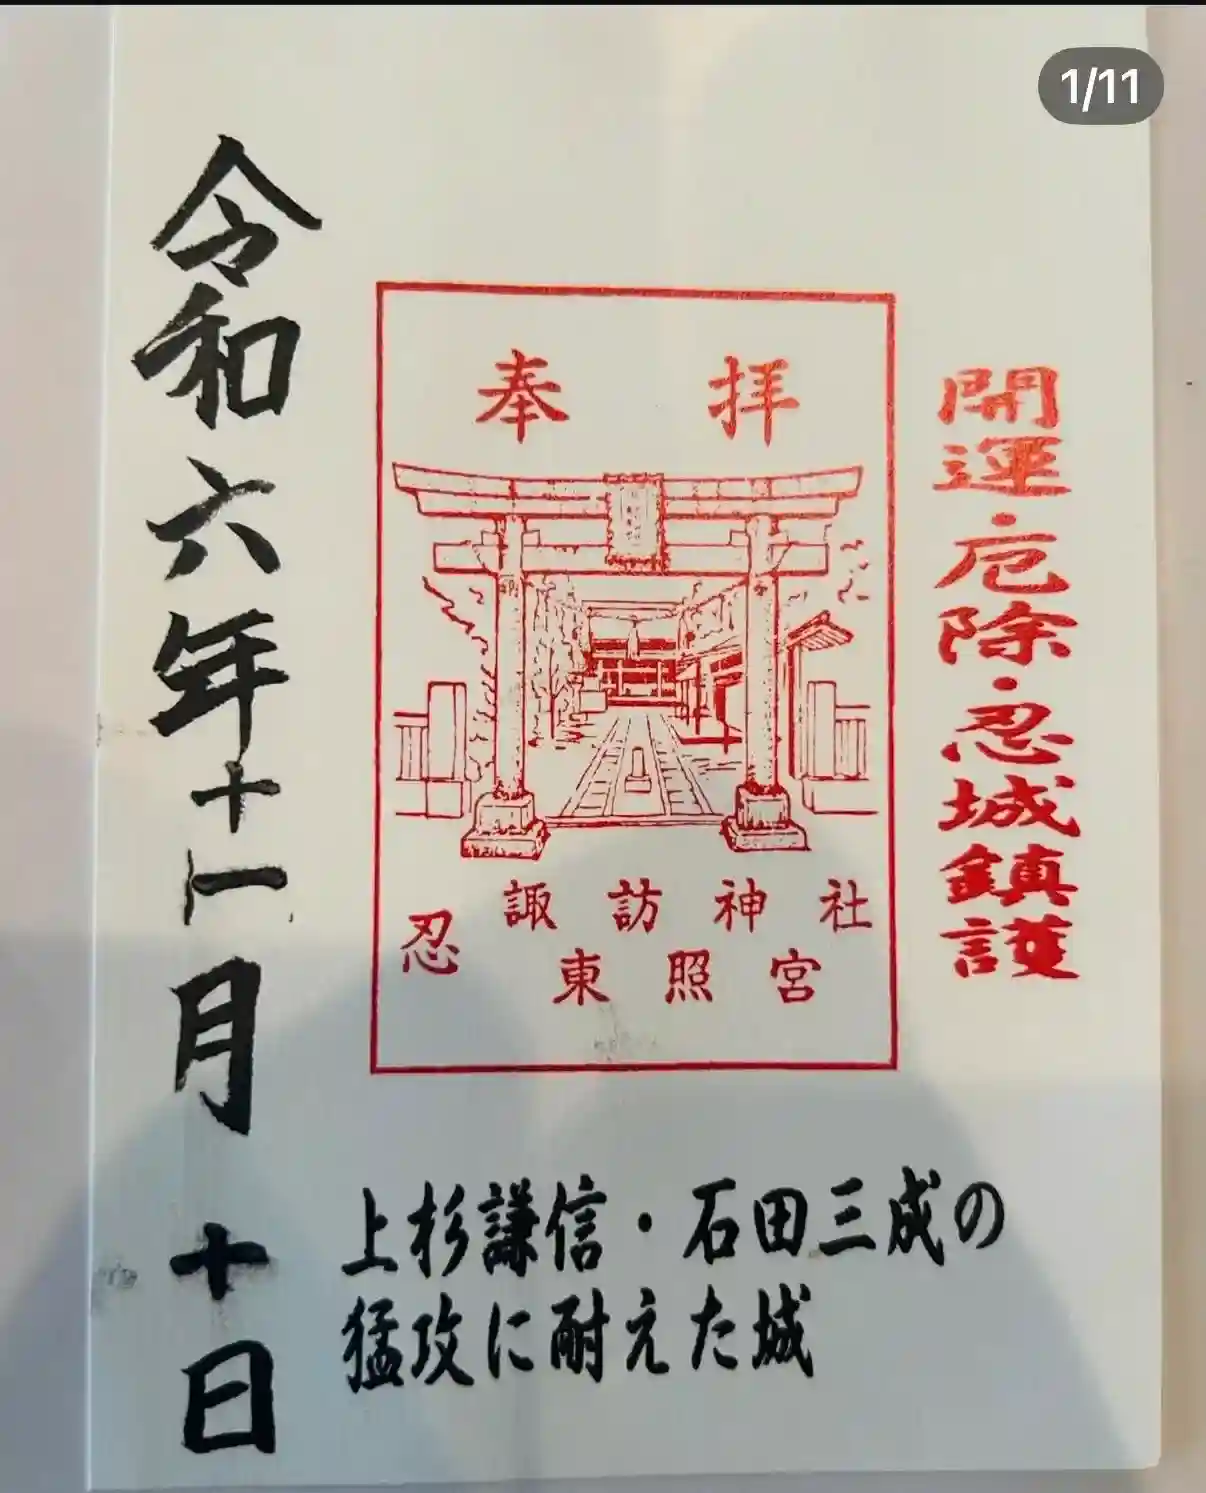 1/11
開運・厄除・忍城鎮護
奉拝
諏訪神社
忍
東照宮
上杉謙信・石田三成の
猛攻に耐えた城
令和六年十一月十日